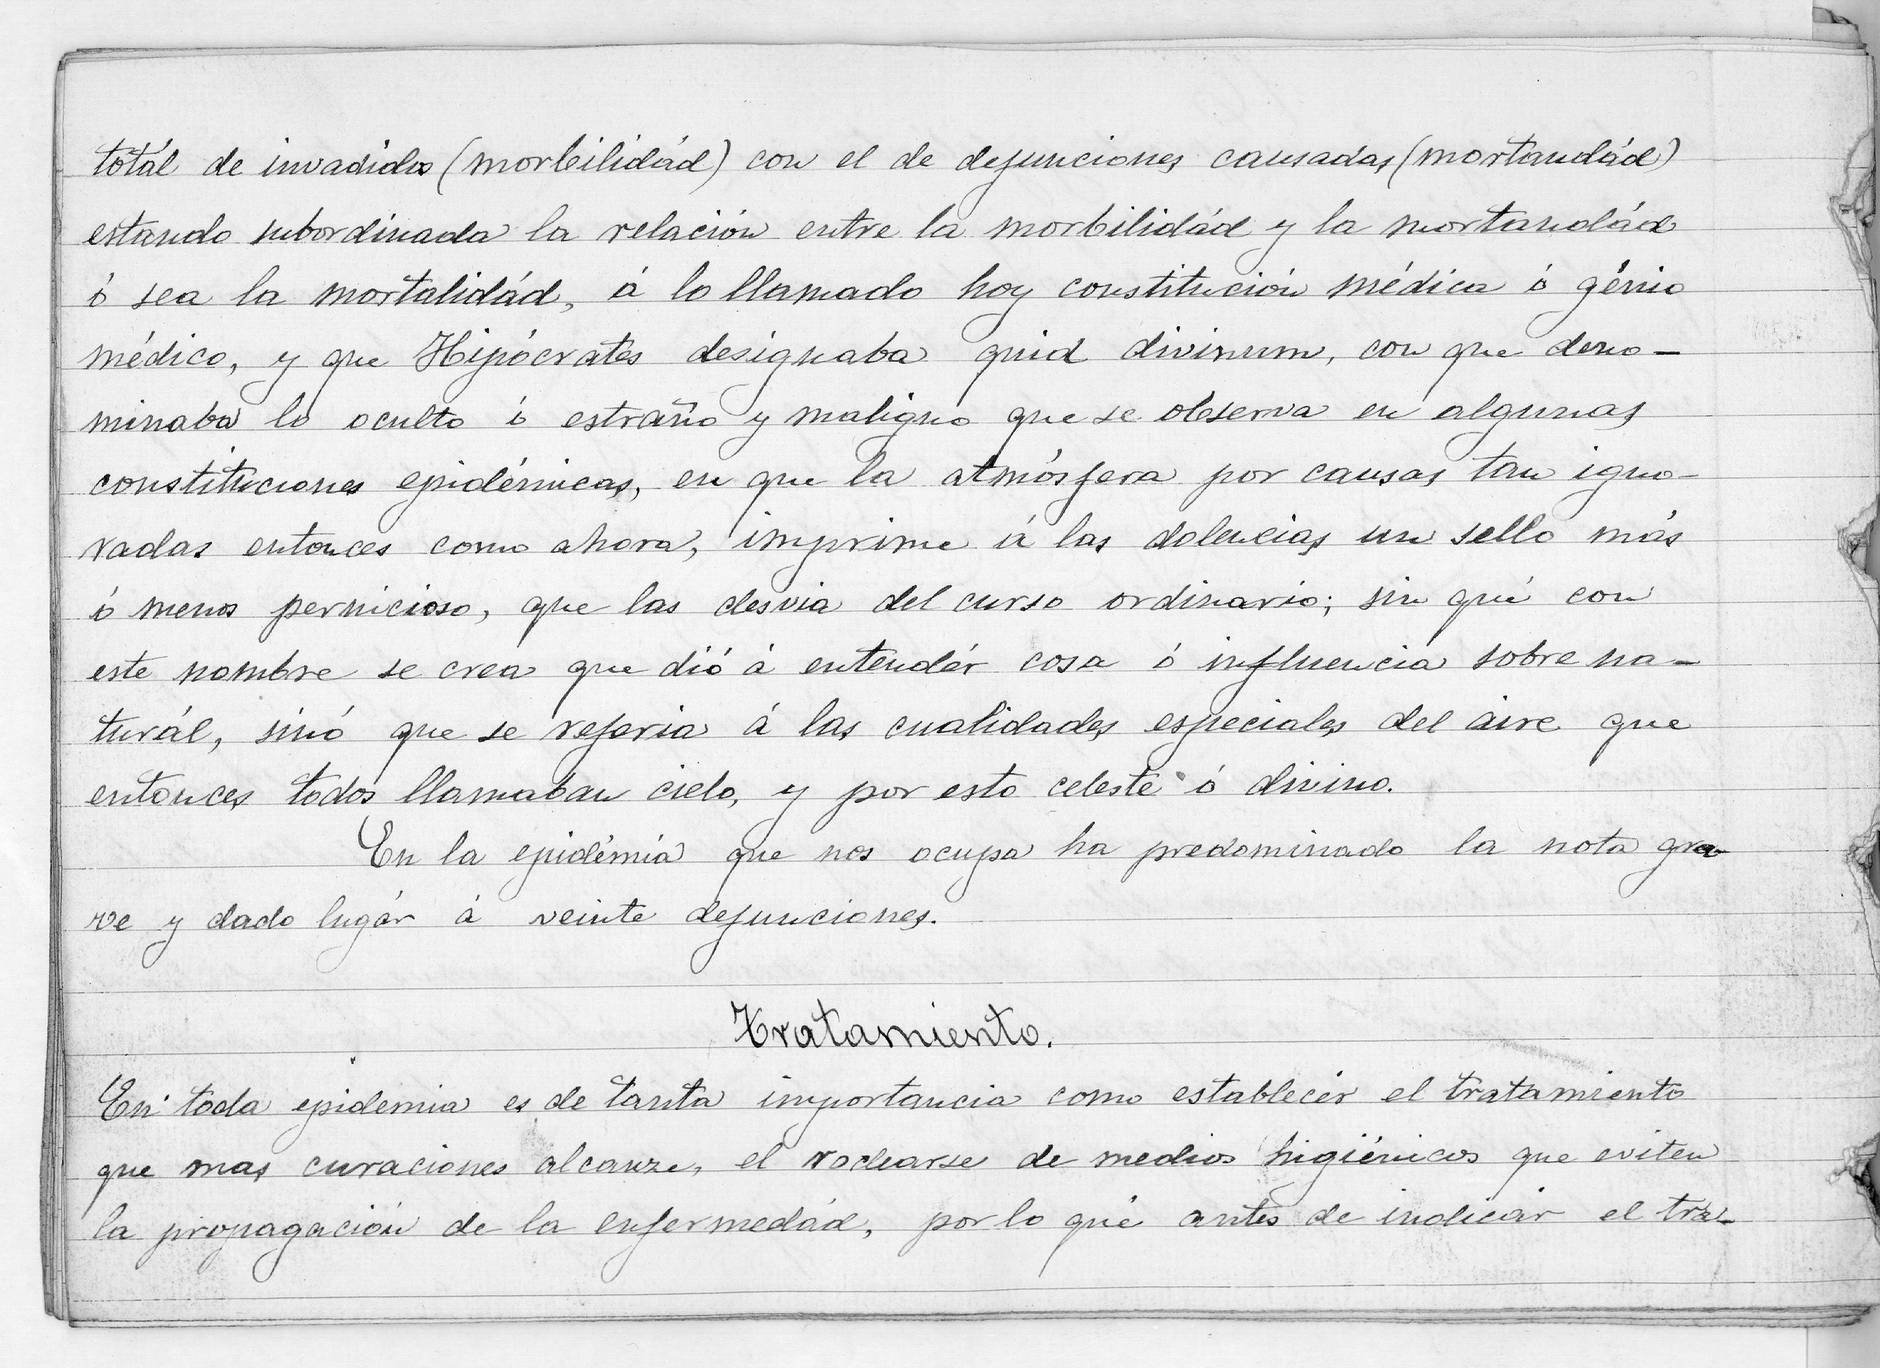 totál de invadidos (morbilidád) con el de defunciones causadas (mortandád)
estando subordinada la relación entre la morbilidád y la mortandád
ó sea la mortalidád, á lo llamado hoy constitución médica ó génio
médico, y que Hipócrates designaba quid divinum, con que deno-
minaba lo oculto ó estraño y maligno que se observa en algunas
constituciones epidémicas, en que la atmósfera por causas tan igno-
radas entonces como ahora, imprime á las dolencias un sello más
ó menos pernicioso, que las desvia del curso ordinario; sin qué con
este nombre se crea que dió á entendér cosa ó influencia sobre na-
turál, sinó que se referia á las cualidades especiales del aire que
entonces todos llamaban cielo, y por esto celeste ó divino.
En la epidémia que nos ocupa ha predominado la nota gra-
ve y dado lugár á veinte defunciones.
Tratamiento.
En toda epidemia es de tanta importancia como establecér el tratamiento
que mas curaciones alcanze, el rodearse de medios higiénicos que eviten
la propagación de la enfermedád, por lo qué antes de indicár el tra-